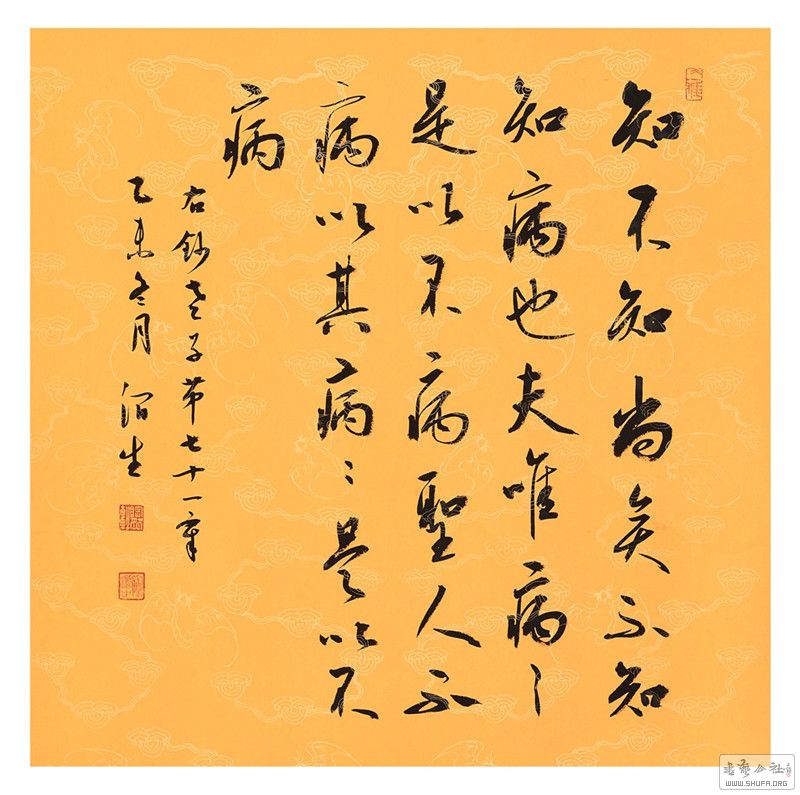 知不知尚矣不知
知病也夫唯病〻
是以不病聖人不
病以其病〻是以不
病
右鈔老子第七十一章
乙未冬月 涓生
書藝公社
WWW.SHUFA.ORG